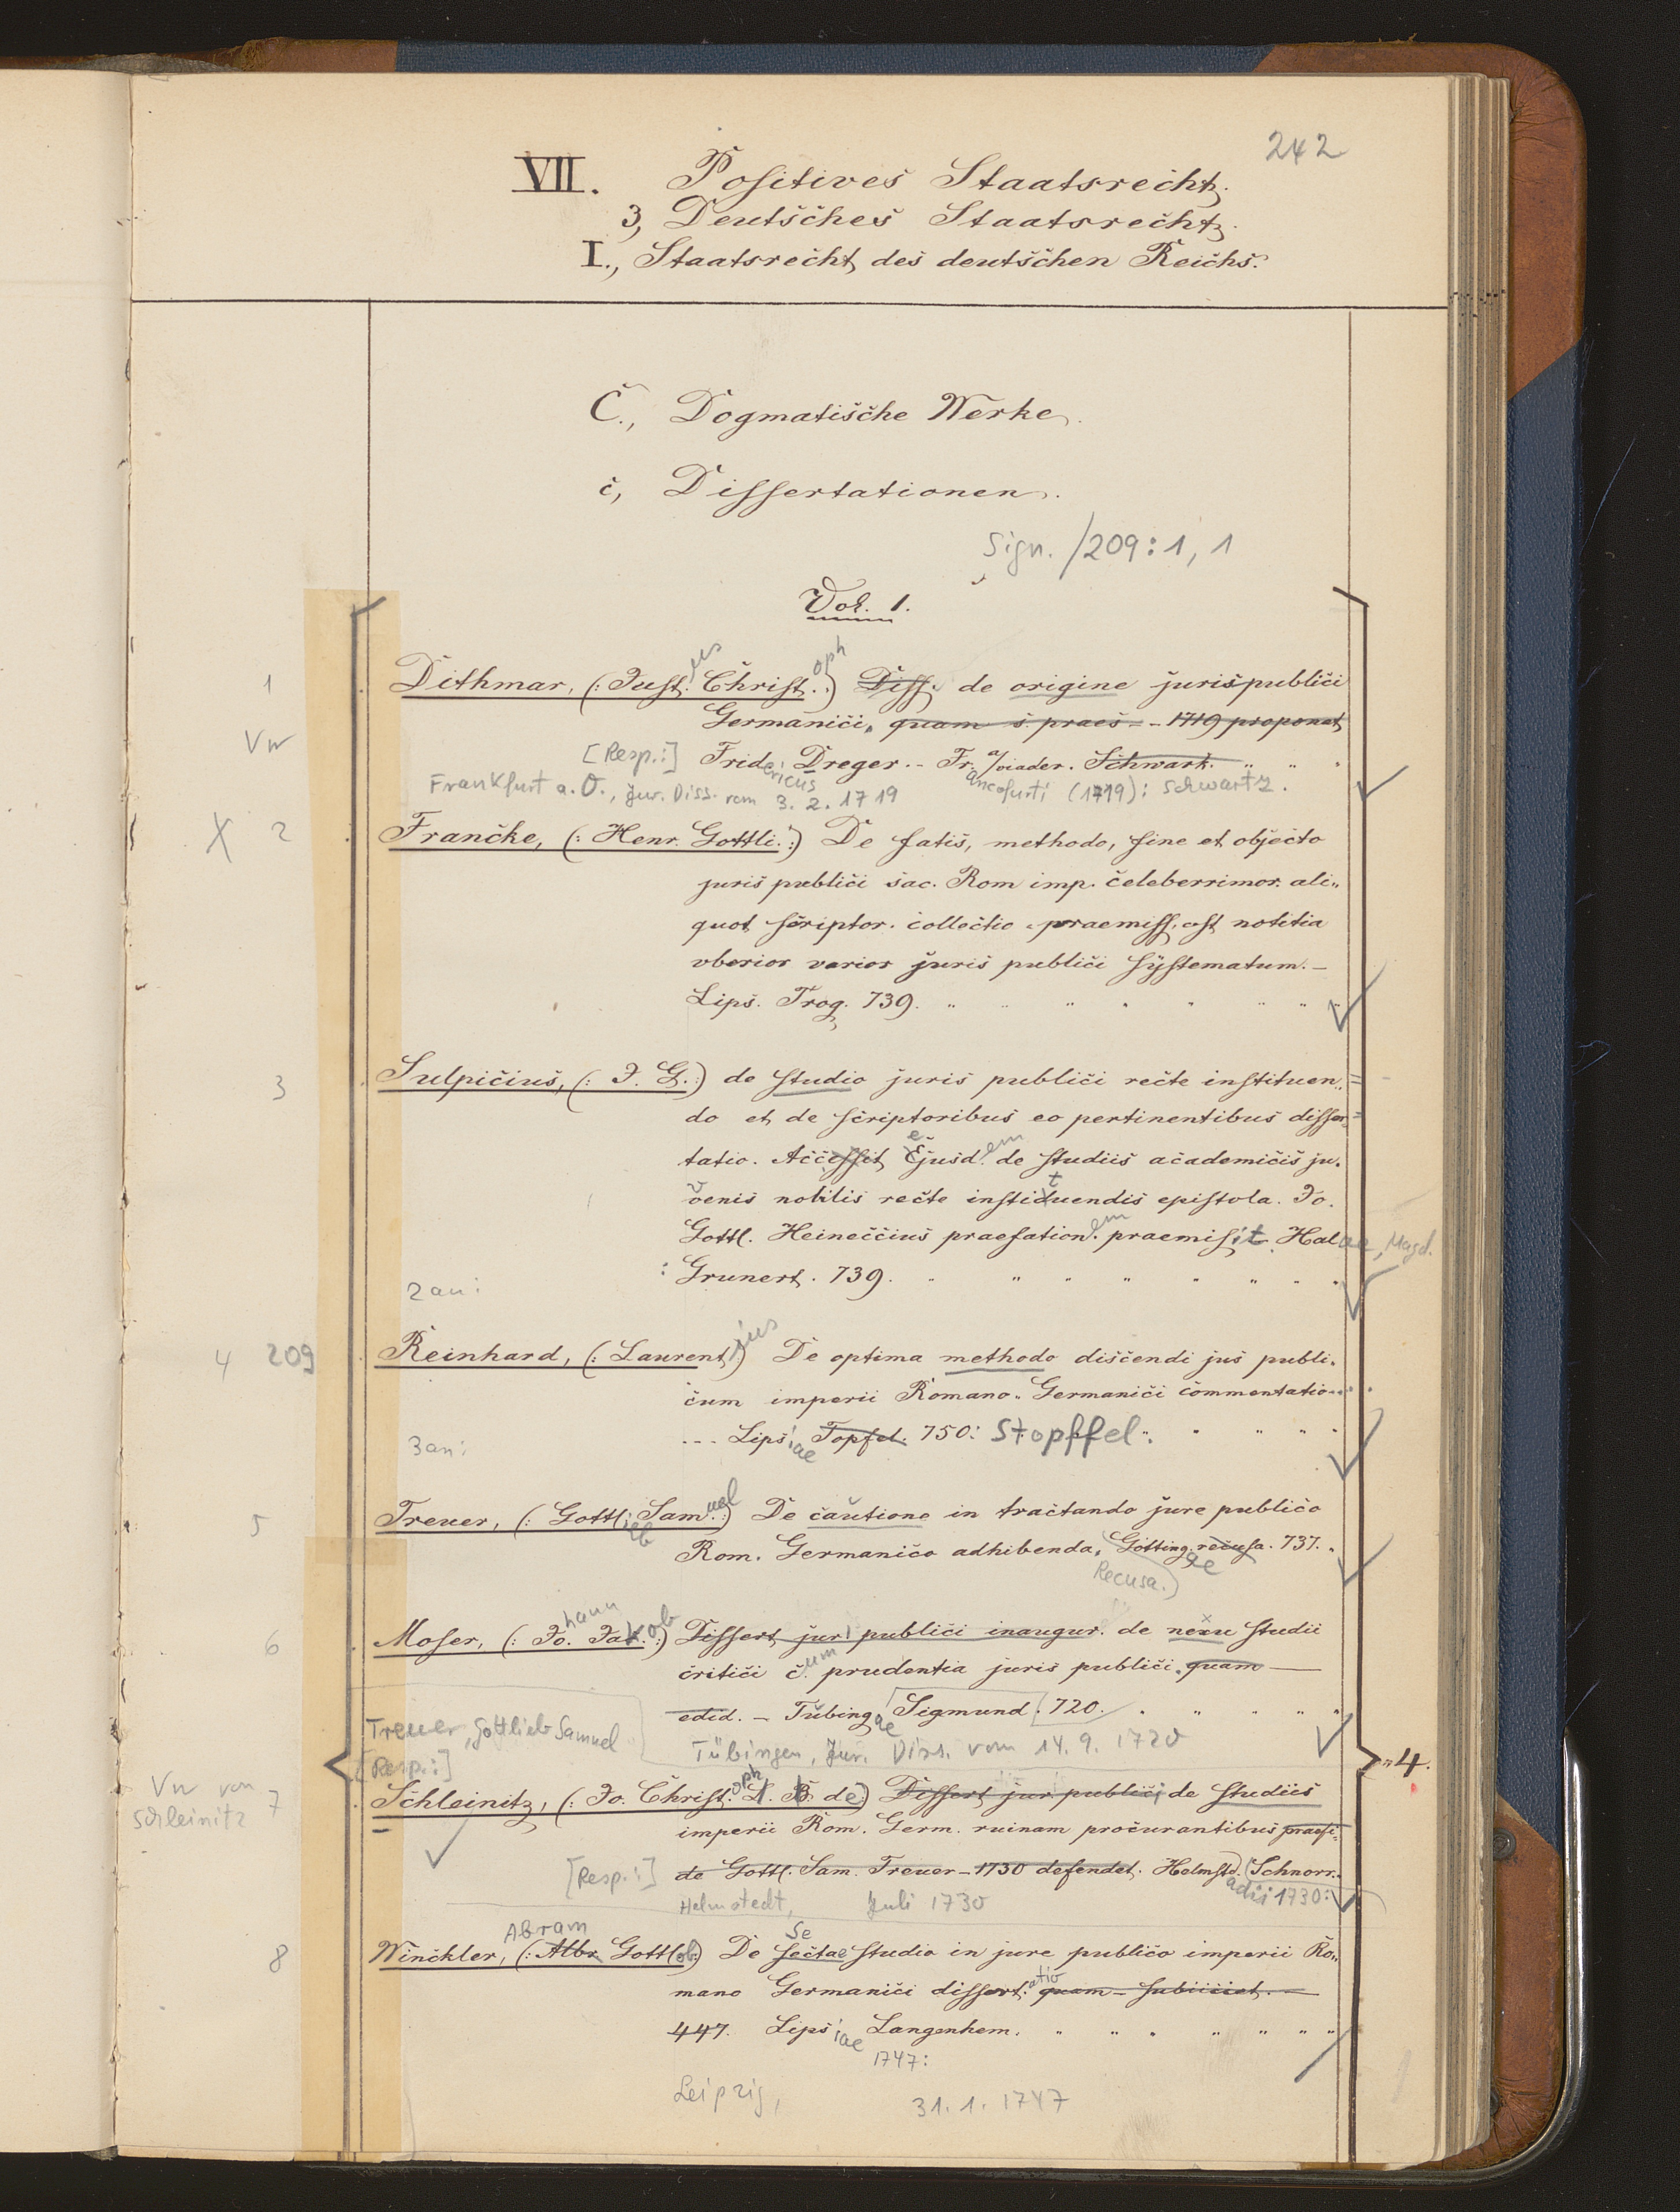 242
VII. Positives Staatsrecht.
3, Deutsches Staatsrecht.
I., Staatsrecht des deutschen Reichs.
C., Dogmatische Werke.
c, Dissertationen.
Sign. /209:1, 1
Vol. 1.
1 Dithmar, (: Just.us Christ.oph :) Diss. de origine juris publici
Germanici, quam s. praes. - 1719 proponet
Vw [Resp.:] Fridericus Dreger. - Fr. a/viader. Schwart.
Frankfurt a. O., Jur. Diss. vom 3. 2. 1719 ancofurti (1719): Schwartz.
X 2 Francke, (: Henr. Gottli. :) De fatis, methodo, fine et objecto
juris publici sac. Rom imp. celeberrimor. ali„
quot scriptor. collectio praemiss. est notitia
vberior varior juris publici systematum. -
Lips. Trog. 739.
3 Sulpicius, (: J. G. :) de studio juris publici recte instituen„
do et de scriptoribus eo pertinentibus disser„
tatio. Accessit ejusd.em de studiis academicis ju„
venis nobilis recte instituendis epistola. Jo.
Gottl. Heineccius praefation.em praemisit. Halae, Magd.
: Grunert. 739.
2 an:
4 209 Reinhard, (: Laurentius :) De optima methodo discendi jus publi„
cum imperii Romano„ Germanici commentatio
--- Lipsiae Topfel. 750: Stopffel.
3 an:
5 Treuer, (: Gottlieb Samuel :) De cautione in tractando jure publico
Rom. Germanico adhibenda, Göttingae recusa. 737.
Recusa.)
6 Moser, (: Johann Jakob :) Dissert jur publici inaugur. de nexu studii
critici cum prudentia juris publici, quam —
edid. - Tübingae Sigmund. 720.
Treuer, Gottlieb Samuel Tübingen, Jur. Diss. vom 14. 9. 1720
[Resp.:] „4.
Vw von Schleinitz 7 Schleinitz, (: Jo. Christoph L. B de :) Dissert jur publici de studiis
imperii Rom. Germ. ruinam procurantibus praesi„
[Resp.:] de Gottl. Sam. Treuer - 1730 defendet. Helmstadii Schnorr.
1730:
Helmstedt, Juli 1730
Abram Se
8 Winckler, (: Albr Gottlob :) De sectae studio in jure publico imperii Ro„
mano Germanici dissert.atio quam - subiiciet. -
447. Lipsiae Langenhem.
1747:
Leipzig, 31. 1. 1747